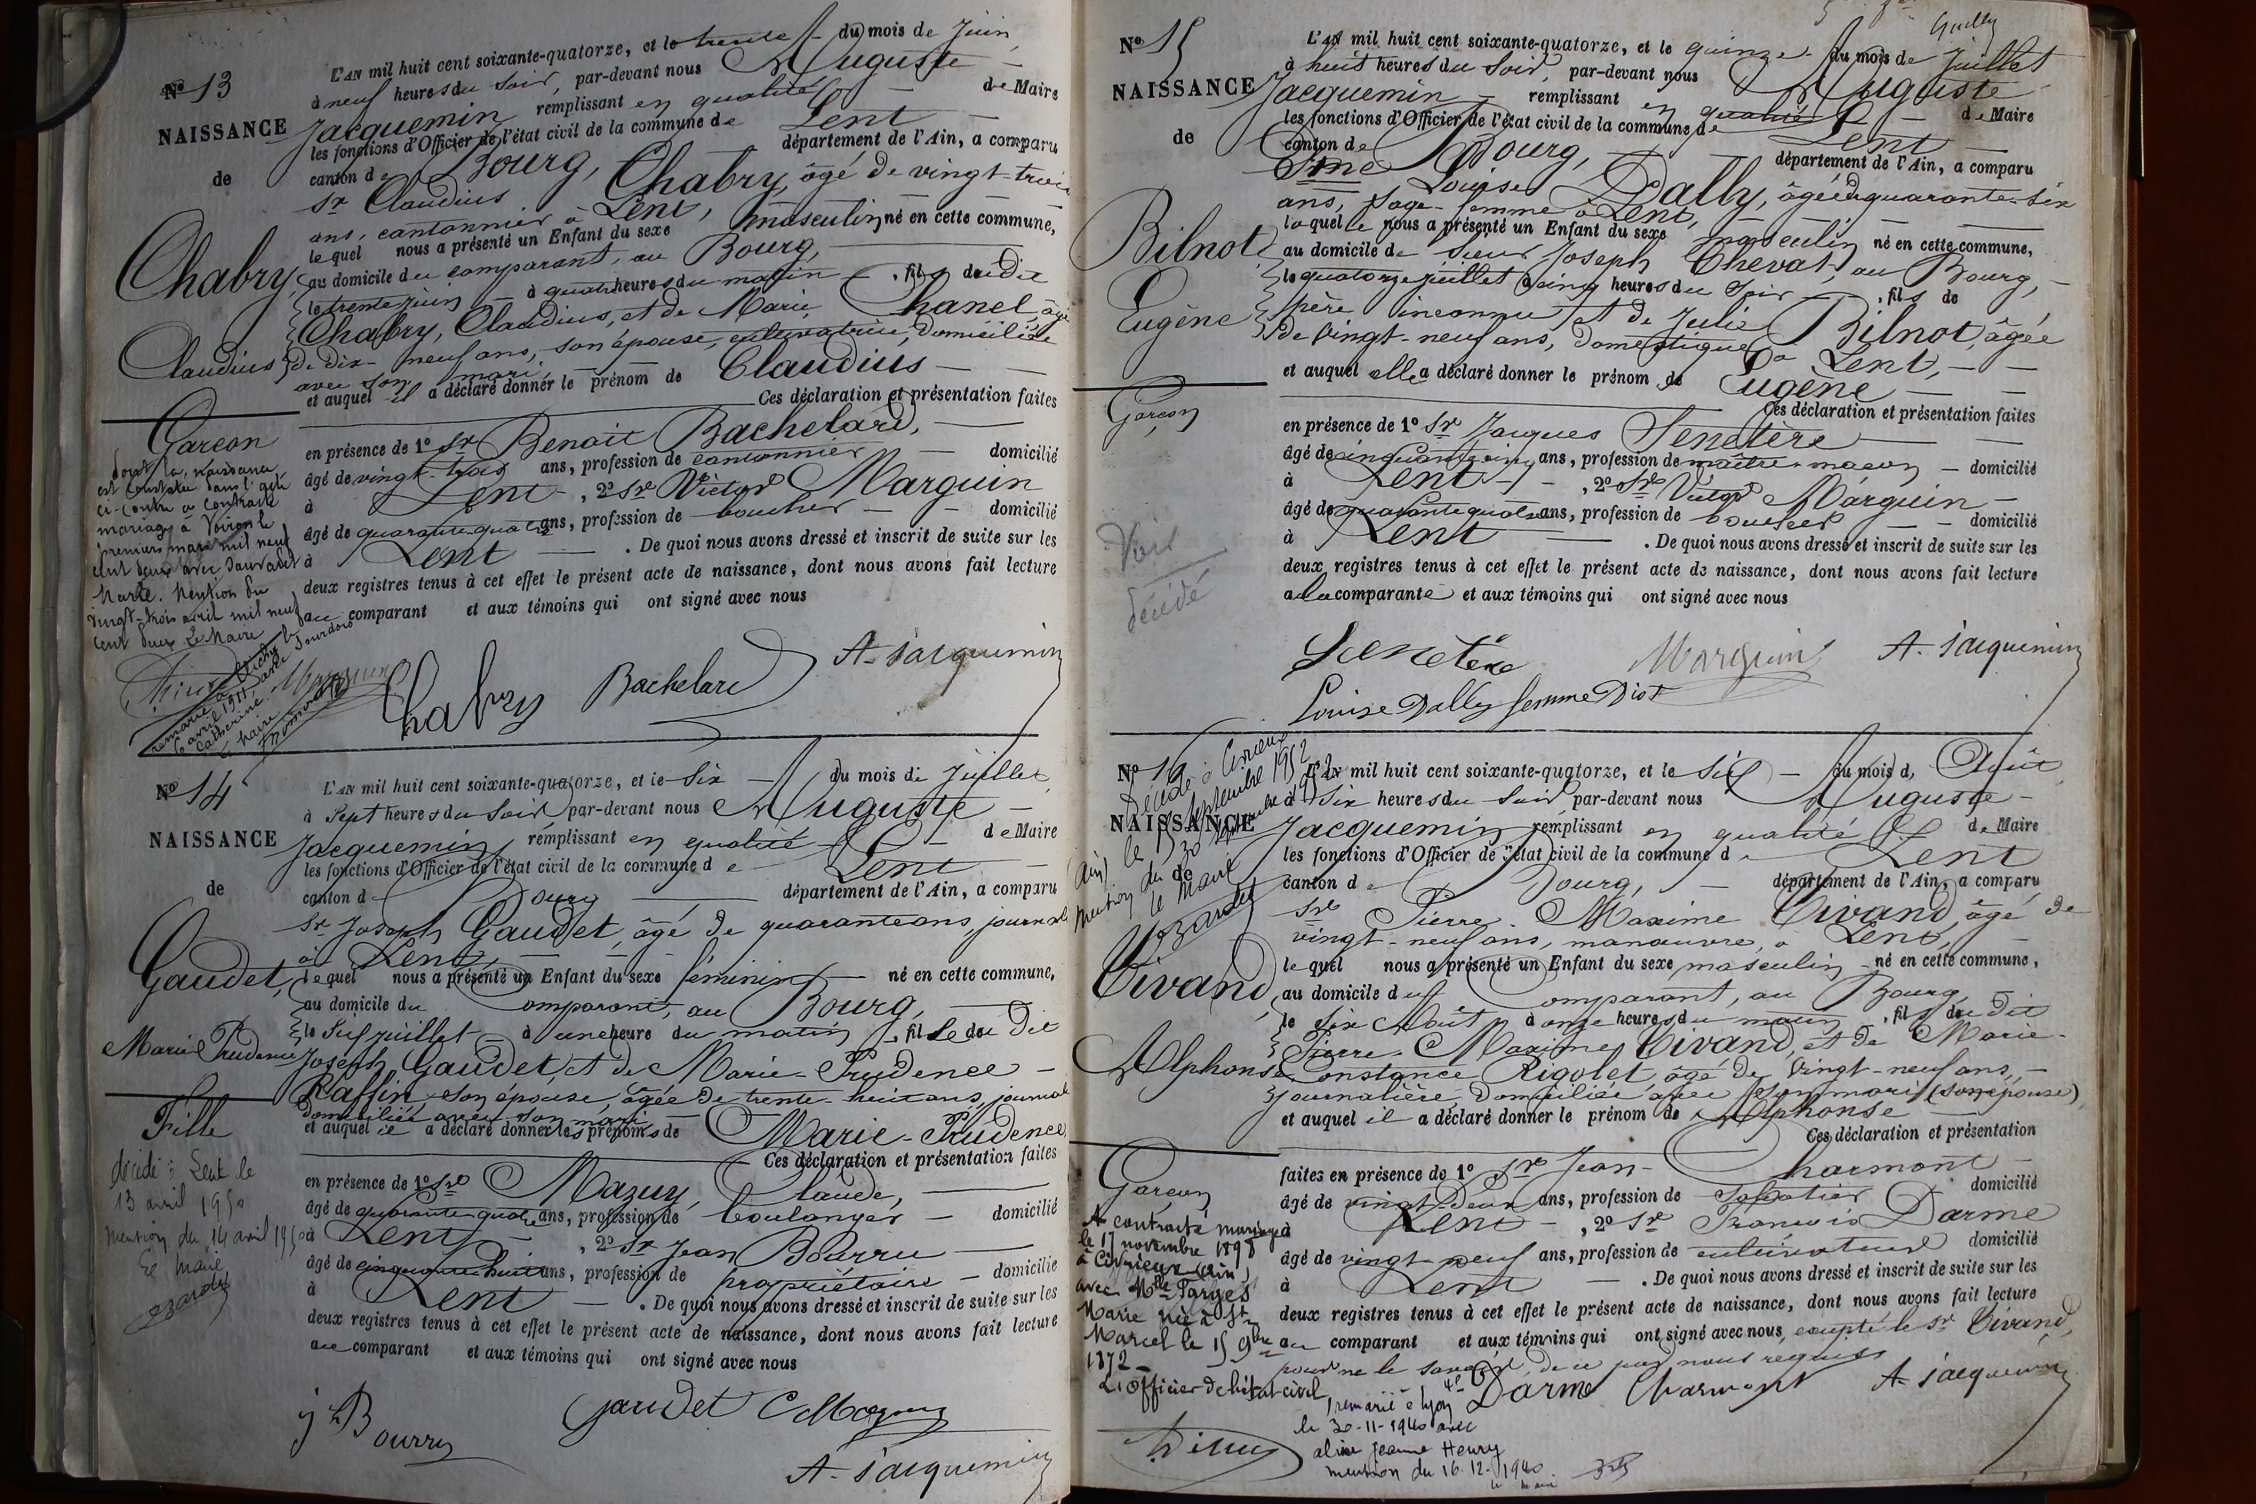 Nº 13
NAISSANCE
de
Chabry,
Claudius
Garçon
dont la naissance
est constatée dans l'acte
ci-contre a contracté
mariage à Voiron le
premier mars mil neuf
cent deux avec
Marie. Mention du
vingt-trois avril mil neuf
cent deux Le Maire
remarié à Vichy le
6 avril 1911, avec
Catherine
Le Maire
L'AN mil huit cent soixante-quatorze, et le trente du mois de Juin
à neuf heures du Soir, par-devant nous Auguste
Jacquemin remplissant en qualité de Maire
les fonctions d'Officier de l'état civil de la commune de Lent
canton de Bourg, département de l'Ain, a comparu
Sr Claudius Chabry, âgé de vingt-trois
ans, cantonnier à Lent,
lequel nous a présenté un Enfant du sexe masculin né en cette commune,
au domicile du comparant, au Bourg,
le trente juin à quatre heures du matin, fils du dit
Chabry, Claudius, et de Marie Chanel, âgée
de dix-neuf ans, son épouse, cultivatrice, domiciliée
avec son mari,
et auquel il a déclaré donner le prénom de Claudius
Ces déclaration et présentation faites
en présence de 1º Sr Benoit Bachelard,
âgé de vingt-trois ans, profession de cantonnier domicilié
à Lent, 2º Sr Victor Marguin
âgé de quarante-quatre ans, profession de boucher domicilié
à Lent. De quoi nous avons dressé et inscrit de suite sur les
deux registres tenus à cet effet le présent acte de naissance, dont nous avons fait lecture
au comparant et aux témoins qui ont signé avec nous
Chabry Bachelard A. Jacquemin
Marguin
Nº 14
NAISSANCE
de
Gaudet,
Marie Prudence
Fille
décédé à Lent le
13 avril 1950
mention du 14 avril 1950
Le Maire
L'AN mil huit cent soixante-quatorze, et le Six du mois de Juillet
à Sept heures du Soir par-devant nous Auguste
Jacquemin remplissant en qualité de Maire
les fonctions d'Officier de l'état civil de la commune de Lent
canton de Bourg département de l'Ain, a comparu
Sr Joseph Gaudet, âgé de quarante ans, journalier
à Lent,
lequel nous a présenté un Enfant du sexe féminin né en cette commune,
au domicile du Comparant, au Bourg,
le Six juillet à une heure du matin, fille du dit
Joseph Gaudet, et de Marie-Prudence
Raffin, son épouse, âgée de trente-huit ans, journalière
domiciliée avec son mari
et auquel il a déclaré donner les prénoms de Marie-Prudence
Ces déclaration et présentation faites
en présence de 1º Sr Mazuy, Claude,
âgé de quarante-quatre ans, profession de boulanger domicilié
à Lent, 2º Sr Jean Bourru
âgé de cinquante-huit ans, profession de propriétaire domicilié
à Lent. De quoi nous avons dressé et inscrit de suite sur les
deux registres tenus à cet effet le présent acte de naissance, dont nous avons fait lecture
au comparant et aux témoins qui ont signé avec nous
Gaudet
A. Jacquemin
Nº 15
NAISSANCE
de
Bilnot
Eugène
Garçon
Voir
décédé
L'AN mil huit cent soixante-quatorze, et le quinze du mois de Juillet
à huit heures du Soir, par-devant nous Auguste
Jacquemin remplissant en qualité de Maire
les fonctions d'Officier de l'état civil de la commune de Lent
canton de Bourg, département de l'Ain, a comparu
Dme Louise Dally, âgée de quarante-six
ans, sage-femme à Lent,
laquelle nous a présenté un Enfant du sexe masculin né en cette commune,
au domicile de Sieur Joseph Chevat, au Bourg,
le quatorze juillet à cinq heures du Soir, fils de
père inconnu et de Julie Bilnot, âgée
de vingt-neuf ans, domestique à Lent,
et auquel elle a déclaré donner le prénom de Eugène
Ces déclaration et présentation faites
en présence de 1º Sr Jacques Senetère
âgé de cinquante-cinq ans, profession de maître-maçon domicilié
à Lent, 2º Sr Victor Marguin
âgé de quarante-quatre ans, profession de boucher domicilié
à Lent. De quoi nous avons dressé et inscrit de suite sur les
deux registres tenus à cet effet le présent acte de naissance, dont nous avons fait lecture
à la comparante et aux témoins qui ont signé avec nous
Senetère Marguin A. Jacquemin
Louise Dally femme Diot
Nº 16
NAISSANCE
de
Décédé à Civrieux
(Ain) le 15 septembre 1952
mention du 30 septembre 1952
le Maire
Vivand,
Alphonse
Garçon
A contracté mariage
le 17 novembre 1898
à Civrieux (Ain)
avec Mlle Parges
Marie née à St
Marcel le 15 9bre
1872
L'officier de l'état-civil
L'AN mil huit cent soixante-quatorze, et le six du mois d'Août
à Six heures du Soir par-devant nous Auguste
Jacquemin remplissant en qualité de Maire
les fonctions d'Officier de l'état civil de la commune de Lent
canton de Bourg, département de l'Ain, a comparu
Sr Pierre-Maxime Vivand, âgé de
vingt-neuf ans, manœuvre, à Lent,
lequel nous a présenté un Enfant du sexe masculin né en cette commune,
au domicile du Comparant, au Bourg,
le six Août à onze heures du matin, fils du dit
Pierre-Maxime Vivand, et de Marie-
Constance Rigolet, âgé de vingt-neuf ans,
journalière, domiciliée avec son mari (son épouse)
et auquel il a déclaré donner le prénom de Alphonse
Ces déclaration et présentation
faites en présence de 1º Sr Jean Charmont
âgé de vingt-deux ans, profession de sabotier domicilié
à Lent, 2º Sr François Darme
âgé de vingt-neuf ans, profession de cultivateur domicilié
à Lent. De quoi nous avons dressé et inscrit de suite sur les
deux registres tenus à cet effet le présent acte de naissance, dont nous avons fait lecture
au comparant et aux témoins qui ont signé avec nous, excepté le Sr Vivand,
pour ne le savoir, de ce par nous requis
Darme Charmont A. Jacquemin
remarié à Lyon 4e
le 30-11-1940 avec
Alice Jeanne Henry
mention du 16.12.1940
le Maire